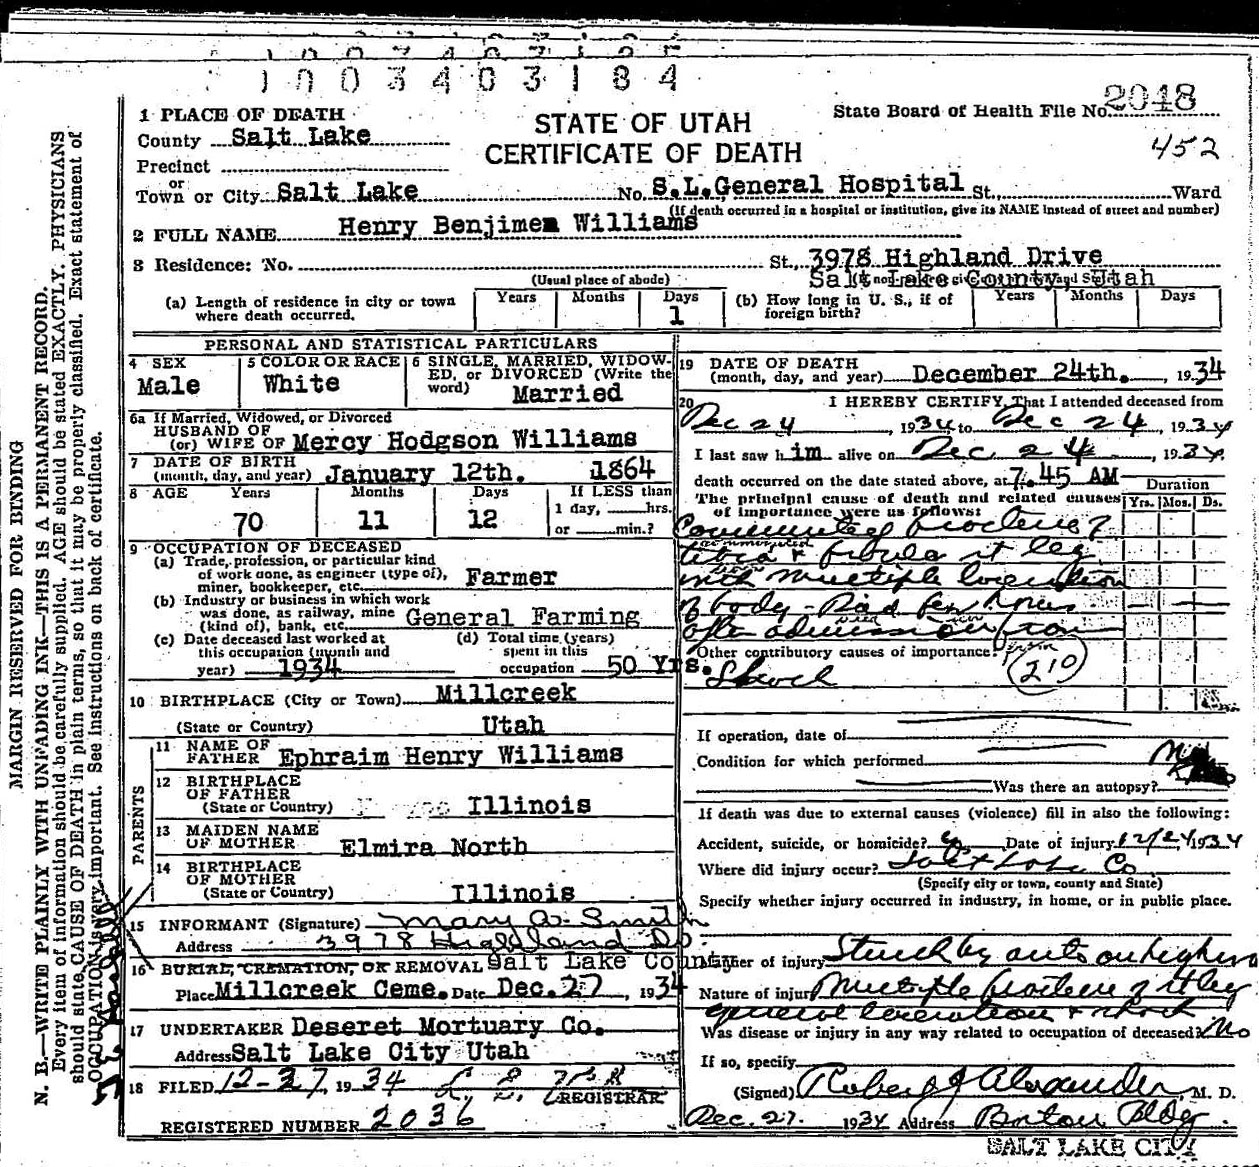 1003403184
State Board of Health File No. 2048
452
STATE OF UTAH
CERTIFICATE OF DEATH
1 PLACE OF DEATH
County Salt Lake
Precinct
or
Town or City Salt Lake No. S.L.General Hospital St., Ward
(If death occurred in a hospital or institution, give its NAME instead of street and number)
2 FULL NAME Henry Benjimen Williams
3 Residence: No. St., 3978 Highland Drive
Salt Lake County Utah
(Usual place of abode)
(a) Length of residence in city or town where death occurred. Years Months Days 1
(b) How long in U. S., if of foreign birth? Years Months Days
PERSONAL AND STATISTICAL PARTICULARS
4 SEX Male
5 COLOR OR RACE White
6 SINGLE, MARRIED, WIDOWED, or DIVORCED (Write the word) Married
6a If Married, Widowed, or Divorced
HUSBAND OF
(or) WIFE OF Mercy Hodgson Williams
7 DATE OF BIRTH
(month, day, and year) January 12th. 1864
8 AGE Years Months Days If LESS than
70 11 12 1 day, hrs.
or min.?
9 OCCUPATION OF DECEASED
(a) Trade, profession, or particular kind
of work done, as engineer (type of),
miner, bookkeeper, etc. Farmer
(b) Industry or business in which work
was done, as railway, mine
(kind of), bank, etc. General Farming
(c) Date deceased last worked at
this occupation (month and
year) 1934
(d) Total time (years)
spent in this
occupation 50 Yrs.
10 BIRTHPLACE (City or Town) Millcreek
(State or Country) Utah
PARENTS
11 NAME OF
FATHER Ephraim Henry Williams
12 BIRTHPLACE
OF FATHER
(State or Country) Illinois
13 MAIDEN NAME
OF MOTHER Elmira North
14 BIRTHPLACE
OF MOTHER
(State or Country) Illinois
15 INFORMANT (Signature) Mary A. Smith
Address 3978 Highland Dr.
16 BURIAL, CREMATION, OR REMOVAL Salt Lake County
Place Millcreek Ceme. Date Dec. 27, 1934
17 UNDERTAKER Deseret Mortuary Co.
Address Salt Lake City Utah
18 FILED 12-27, 1934
REGISTRAR
REGISTERED NUMBER 2036
19 DATE OF DEATH
(month, day, and year) December 24th., 1934
20 I HEREBY CERTIFY, That I attended deceased from
Dec 24 1934 to Dec 24, 1934
I last saw him alive on Dec 24, 1934
death occurred on the date stated above, at 7.45 AM
Duration
The principal cause of death and related causes of importance were as follows: Yrs. Mos. Ds.
fracture of
tibia & fibula rt leg
with multiple laceration
of body - Died few hours
after admission from
Other contributory causes of importance:
Shock
210
If operation, date of
Condition for which performed
Was there an autopsy?
If death was due to external causes (violence) fill in also the following:
Accident, suicide, or homicide? Date of injury 12/24, 1934
Where did injury occur? Salt Lake Co
(Specify city or town, county and State)
Specify whether injury occurred in industry, in home, or in public place.
Manner of injury Struck by auto on highway
Nature of injury Multiple fracture of rt leg
general laceration & shock
Was disease or injury in any way related to occupation of deceased? No
If so, specify
(Signed) Robert J Alexander, M. D.
Dec. 27 1934 Address Boston Bldg
SALT LAKE CITY
MARGIN RESERVED FOR BINDING
N. B.—WRITE PLAINLY WITH UNFADING INK—THIS IS A PERMANENT RECORD.
Every item of information should be carefully supplied. AGE should be stated EXACTLY. PHYSICIANS
should state CAUSE OF DEATH in plain terms, so that it may be properly classified. Exact statement of
OCCUPATION is very important. See instructions on back of certificate.